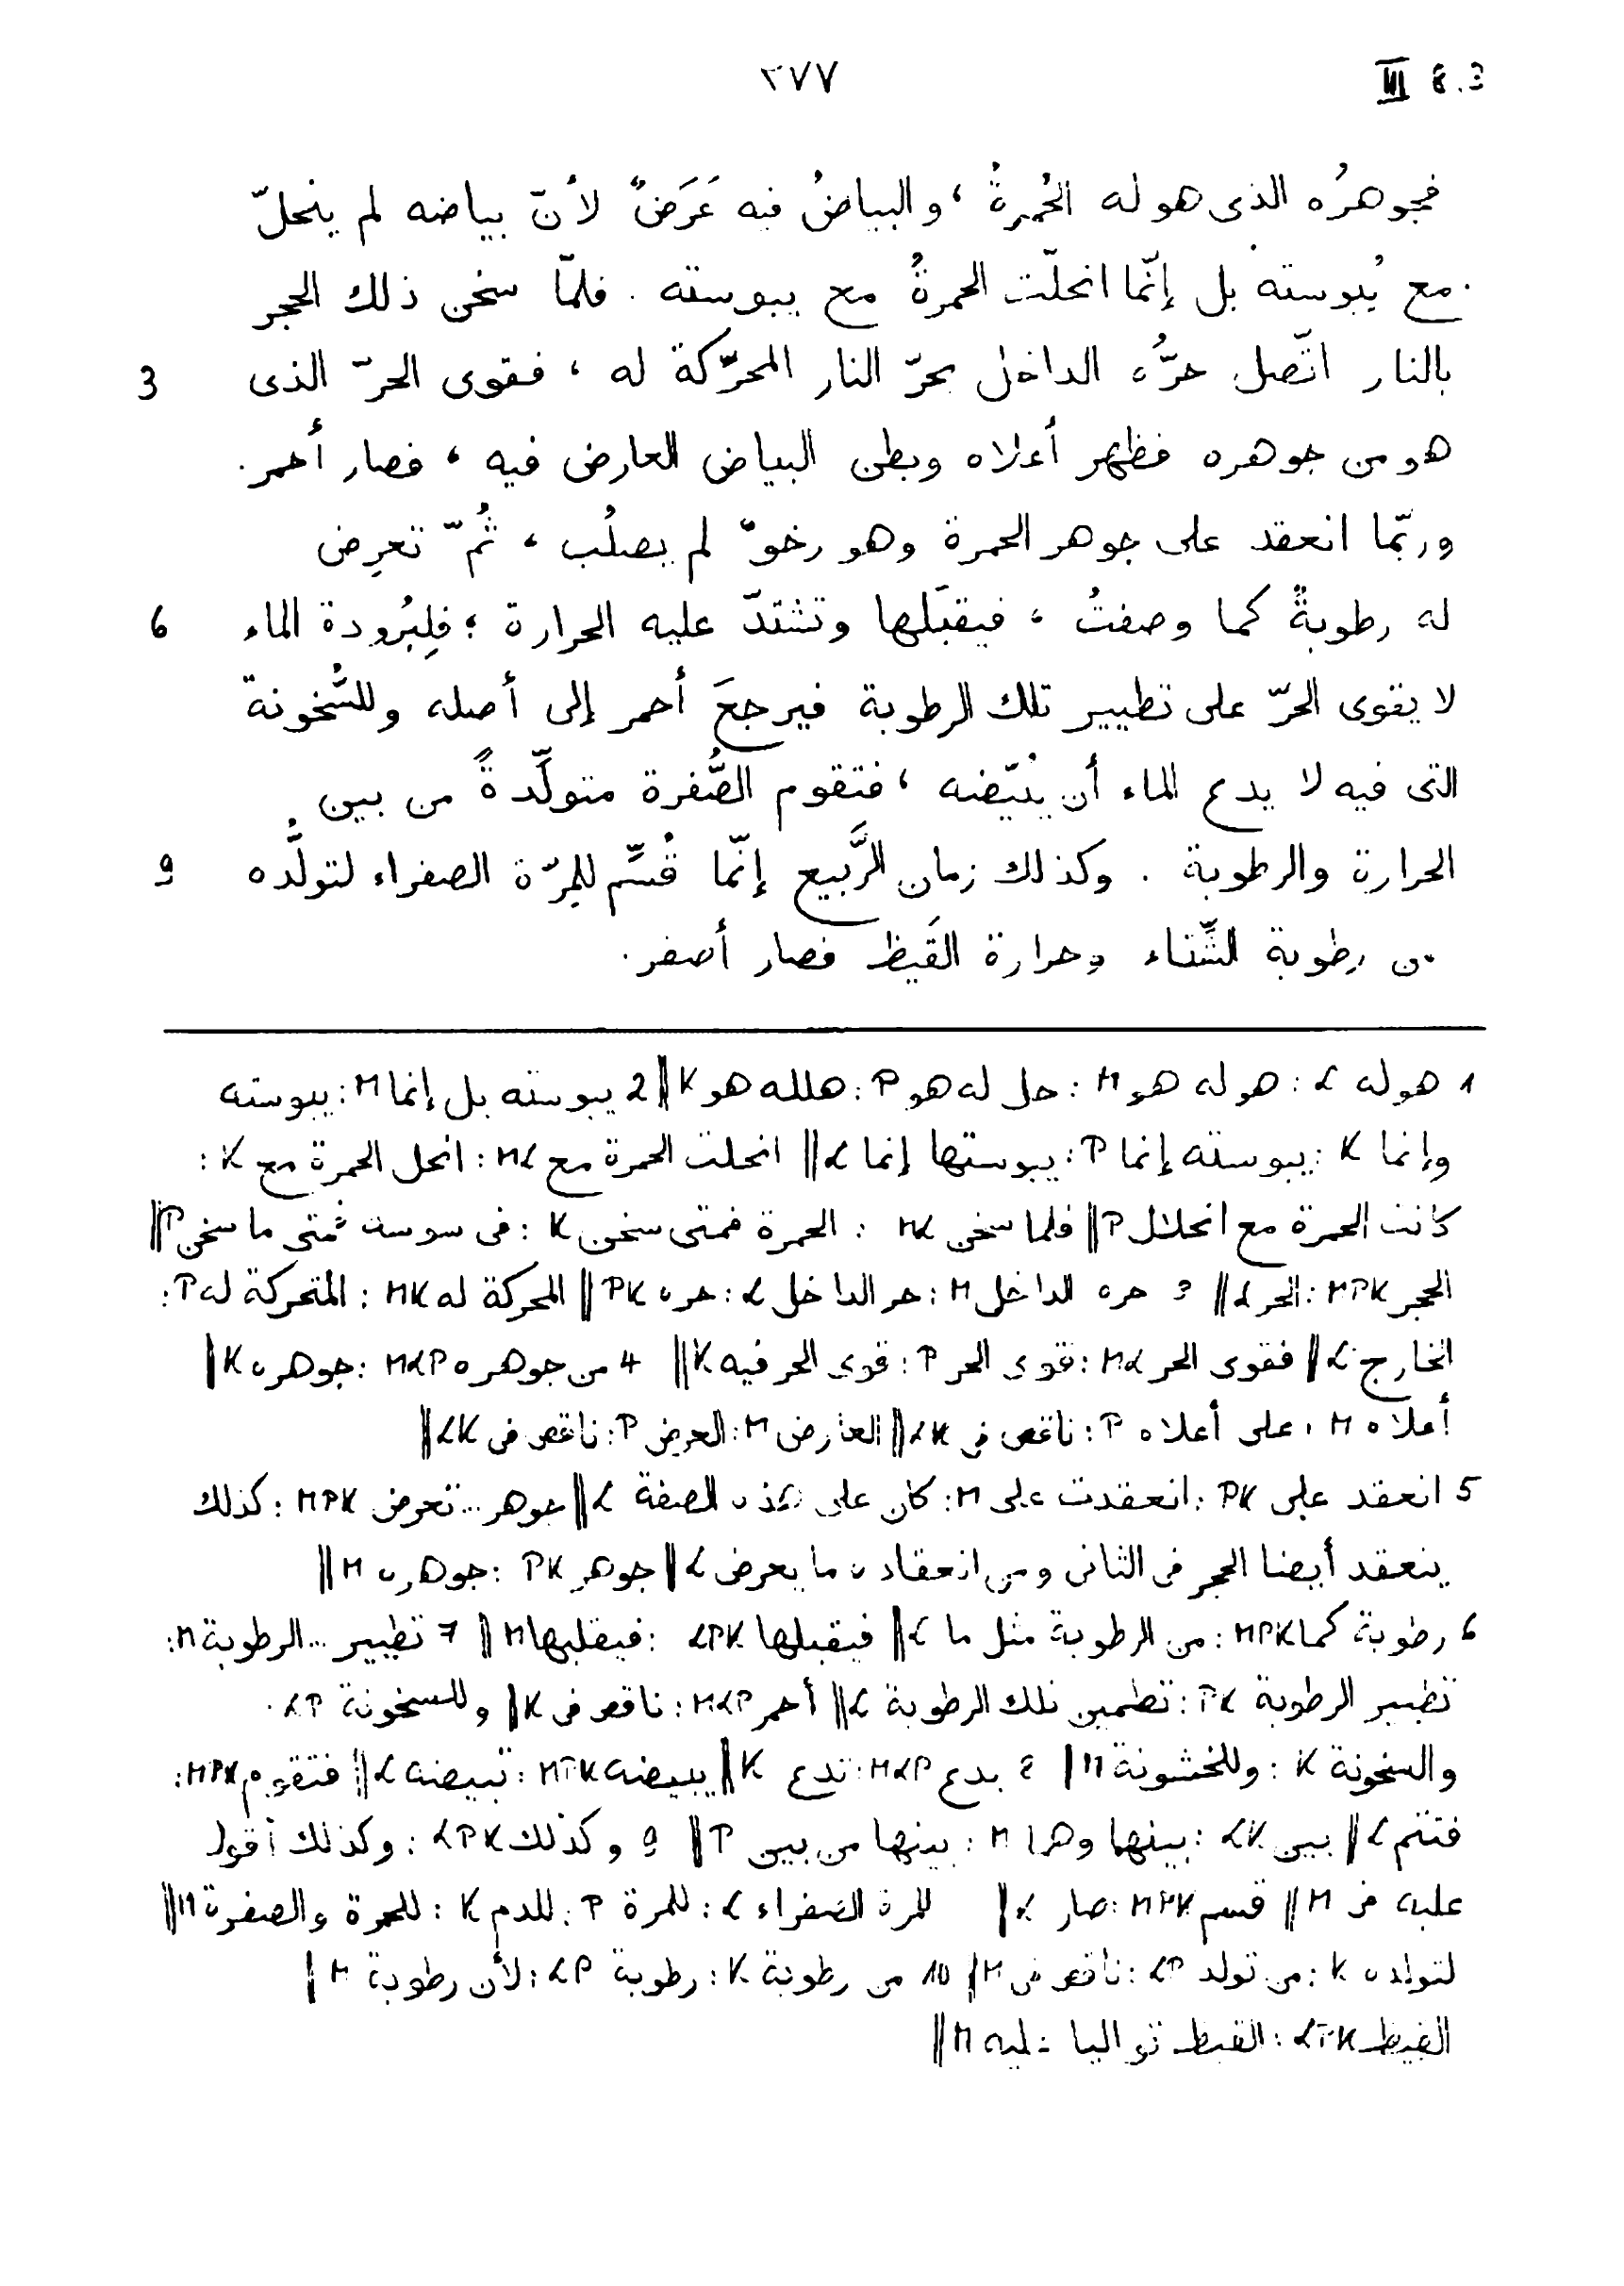 ٢٧٧ III 8.3
فجوهرُه الذى هو له الحُمرةُ ، والبياضُ فيه عَرَضٌ لأنّ بياضه لم ينحلّ
مع يُبوسته بل إنّما انحلّت الحمرةُ مع يبوسته . فلمّا سخن ذلك الحجر
بالنار اتّصل حرُّه الداخل بحرّ النار المحرّكة له ، فقوى الحرّ الذى 3
هو من جوهره فظهر أعلاه وبطن البياض العارض فيه ، فصار أحمر.
وربّما انعقد على جوهر الحمرة وهو رخوٌ لم يصلُب ، ثُمّ تعرِض
له رطوبةٌ كما وصفتُ ، فيقبَلها وتشتدّ عليه الحرارة ؛ فلِبُرودة الماء 6
لا يقوى الحرّ على تطيير تلك الرطوبة فيرجعَ أحمر إلى أصله وللسُّخونة
التى فيه لا يدع الماء أن يُبيّضه ، فتقوم الصُّفرة متولِّدةً من بين
الحرارة والرطوبة . وكذلك زمان الرَّبيع إنّما قُسِّم للمِرّة الصفراء لتولُّده 9
من رطوبة الشِّتاء وحرارة القَيظ فصار أصفر.
1 هو له L : هو له هو M : حل له هو P : هلله هو K || 2 يبوسته بل إنما M : يبوسته
وإنما K : يبوسته إنما P : يبوستها إنما L || انحلت الحمرة مع ML : انحل الحمرة مع K :
كانت الحمرة مع انحلال P || فلما سخن ML : الحمرة فمتى سخن K : فى سوسه فمتى ما سخن P ||
الحجر MPK : الحر L || 3 حره الداخل M : حر الداخل L : حره PK || المحركة له MK : المتحركة له P :
الخارج L || فقوى الحر ML : قوى الحر P : قوى الحر فيه K || 4 من جوهره MLP : جوهره K ||
أعلاه M : على أعلاه P : ناقص فى LK || العارض M : العرض P : ناقص فى LK ||
5 انعقد على PK : انعقدت على M : كان على هذه الصفة L || جوهر ... تعرض MPK : كذلك
ينعقد أيضا الحجر فى الثانى ومن انعقاده ما يعرض L || جوهر PK : جوهره M ||
6 رطوبة كما MPK : من الرطوبة مثل ما L || فيقبلها LPK : فيقلبها M || 7 تطيير ... الرطوبة M :
تطيير الرطوبة PK : تطمين تلك الرطوبة L || أحمر MLP : ناقص فى K || وللسخونة LP :
والسخونة K : وللخشونة M || 8 يدع MLP : تدع K || يبيضه MPK : تبيضه L || فتقوم MPK :
فتتم L || بين LK : بينها وهرا M : بينها من بين P || 9 وكذلك LPK : وكذلك أقول
عليه فى M || قسم MPK : صار L || للمرة الصفراء L : للمرة P : للدم K : للحمرة والصفرة M ||
لتولده K : من تولد LP : ناقص فى M || 10 من رطوبة K : رطوبة LP : لأن رطوبة M ||
القيظ LPK : القيظ تواليا عليه M ||